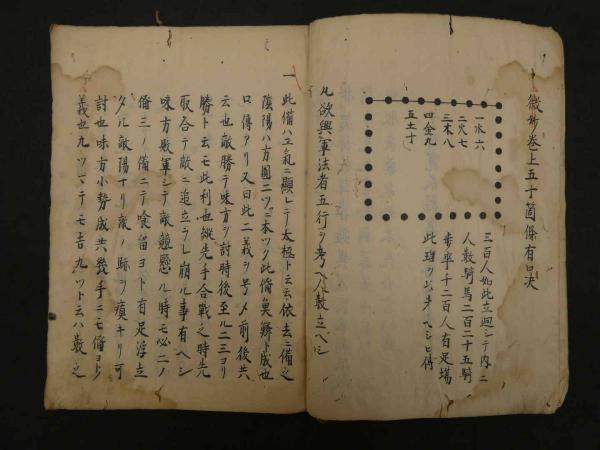 微妙巻上五十箇條有口决
一水六
二火七
三木八
四金九
五土十
三百人如此立廻シテ内ニ
人数騎馬二百二十五騎
歩卒千二百人有足場
此理ヲ以考ヘシト得
凡欲興軍法者五行ヲ考ヘ人数立ヘシ
一此備ハ一氣ニ顕レテ太極ト云云依去ニ備之
陰陽ハ方圓二ツニ本ツク此備奥辨ト成也
口傳アリ又曰此二義ヲ号メ前後共
云也敵勝テ味方ヲ討時後至ル二三ヨリ
勝ト云モ此利也縦先手合戦之時先
取合テ敵ニ追立ラレ崩ル事有ヘシ
味方敗軍シテ敵競懸ル時モ必二ノ
備三ノ備ニテ喰留ヨト有足浮立
タル敵陽ナリ敵ノ跡ヲ痿キリ可
討也味方小勢成共幾手ニモ備ヨト
義也九ツマテモ吉九ツト云ハ数之